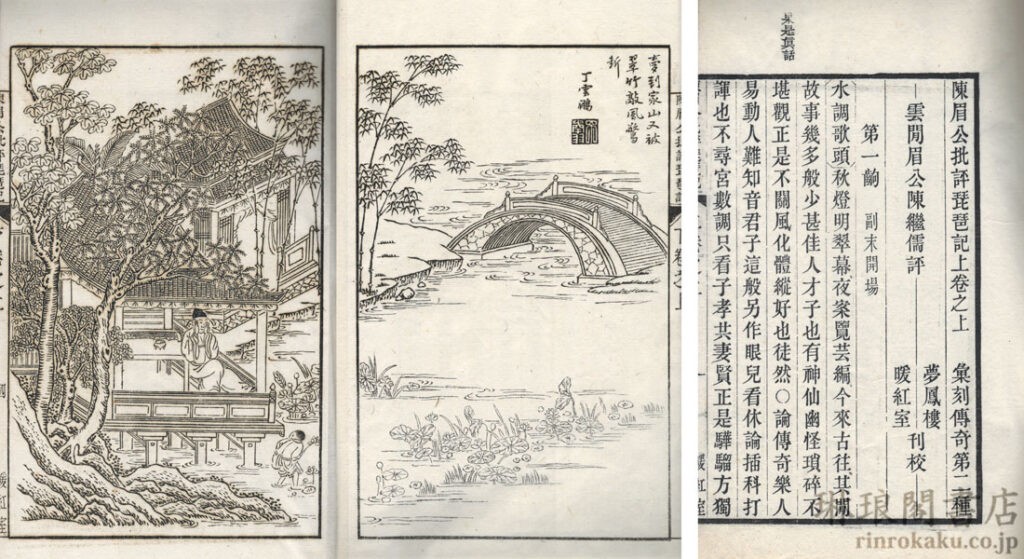 夢到家山又被
翠竹敲風驚
斷
丁雲鵬
果是真話
陳眉公批評琵琶記上卷之上　彙刻傳奇第二種
雲間眉公陳繼儒評
夢鳳樓
暖紅室
刊校
第一齣　副末開場
水調歌頭秋燈明翠幕夜案覽芸編今來古往其間
故事幾多般少甚佳人才子也有神仙幽怪瑣碎不
堪觀正是不關風化體縱好也徒然〇論傳奇樂人
易動人難知音君子這般另作眼兒看休論插科打
諢也不尋宮數調只看子孝共妻賢正是驊騮方獨
暖紅室
琳琅閣書店
rinrokaku.co.jp